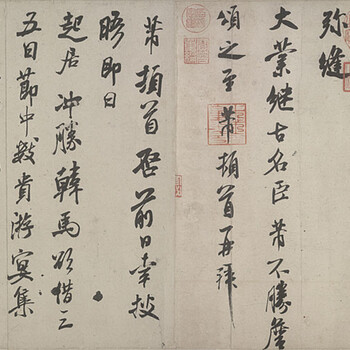 弥縫
大業継古名臣芾不勝慶
頌之至芾頓首再拜
芾頓首啓前日幸披
晤即日
起居冲勝韓馬欲借三
五日節中數貴游宴集